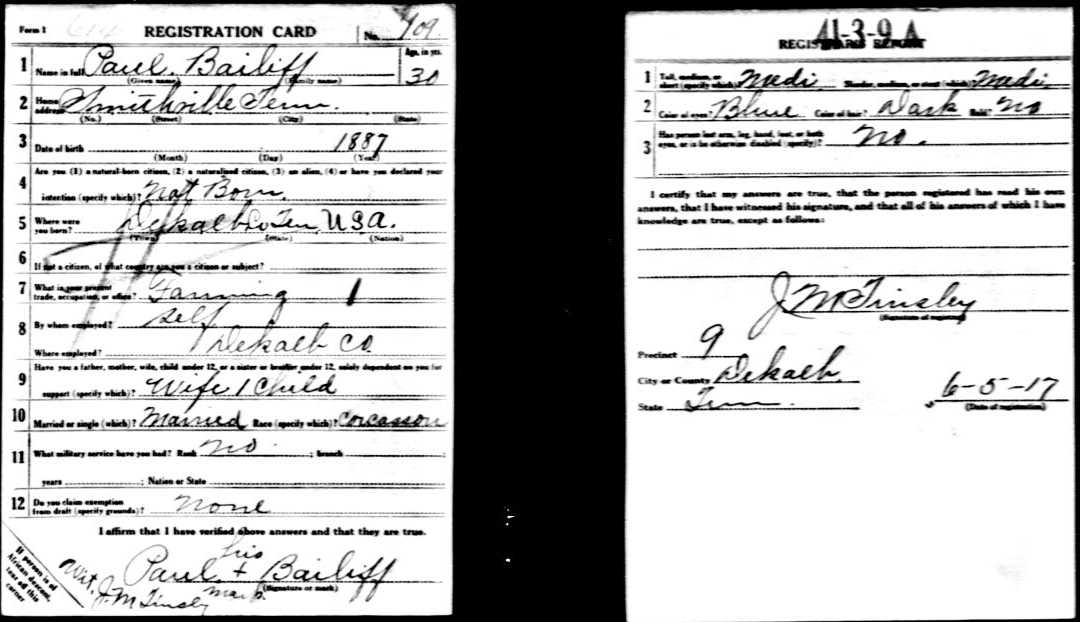 Form 1 614 REGISTRATION CARD No. 109
1 Name in full Paul. Bailiff Age, in yrs. 30
(Given name) (Family name)
2 Home address Smithville Tenn.
(No.) (Street) (City) (State)
3 Date of birth 1887
(Month) (Day) (Year)
4 Are you (1) a natural-born citizen, (2) a naturalized citizen, (3) an alien, (4) or have you declared your
intention (specify which)? Nat Born.
5 Where were you born? Dekalb Co Ten, U.S.A.
(Town) (State) (Nation)
6 If not a citizen, of what country are you a citizen or subject?
7 What is your present trade, occupation, or office? Farming 1
8 By whom employed? Self
Where employed? Dekalb Co.
9 Have you a father, mother, wife, child under 12, or a sister or brother under 12, solely dependent on you for
support (specify which)? Wife 1 Child
10 Married or single (which)? Married Race (specify which)? Corcasson
11 What military service have you had? Rank No ; branch ;
years ; Nation or State
12 Do you claim exemption from draft (specify grounds)? None
I affirm that I have verified above answers and that they are true.
his
Paul + Bailiff
(Signature or mark)
Wit. J. M Tinsley mark
If person is of
African descent,
tear off this
corner
41-3-9 A
REGISTRAR'S REPORT
1 Tall, medium, or short (specify which)? Medi. Slender, medium, or stout (which)? Medi.
2 Color of eyes? Blue Color of hair? Dark Bald? No
3 Has person lost arm, leg, hand, foot, or both eyes, or is he otherwise disabled (specify)? No.
I certify that my answers are true, that the person registered has read his own
answers, that I have witnessed his signature, and that all of his answers of which I have
knowledge are true, except as follows:
J M Tinsley
(Signature of registrar)
Precinct 9
City or County Dekalb.
State Tenn. 6-5-17
(Date of registration)